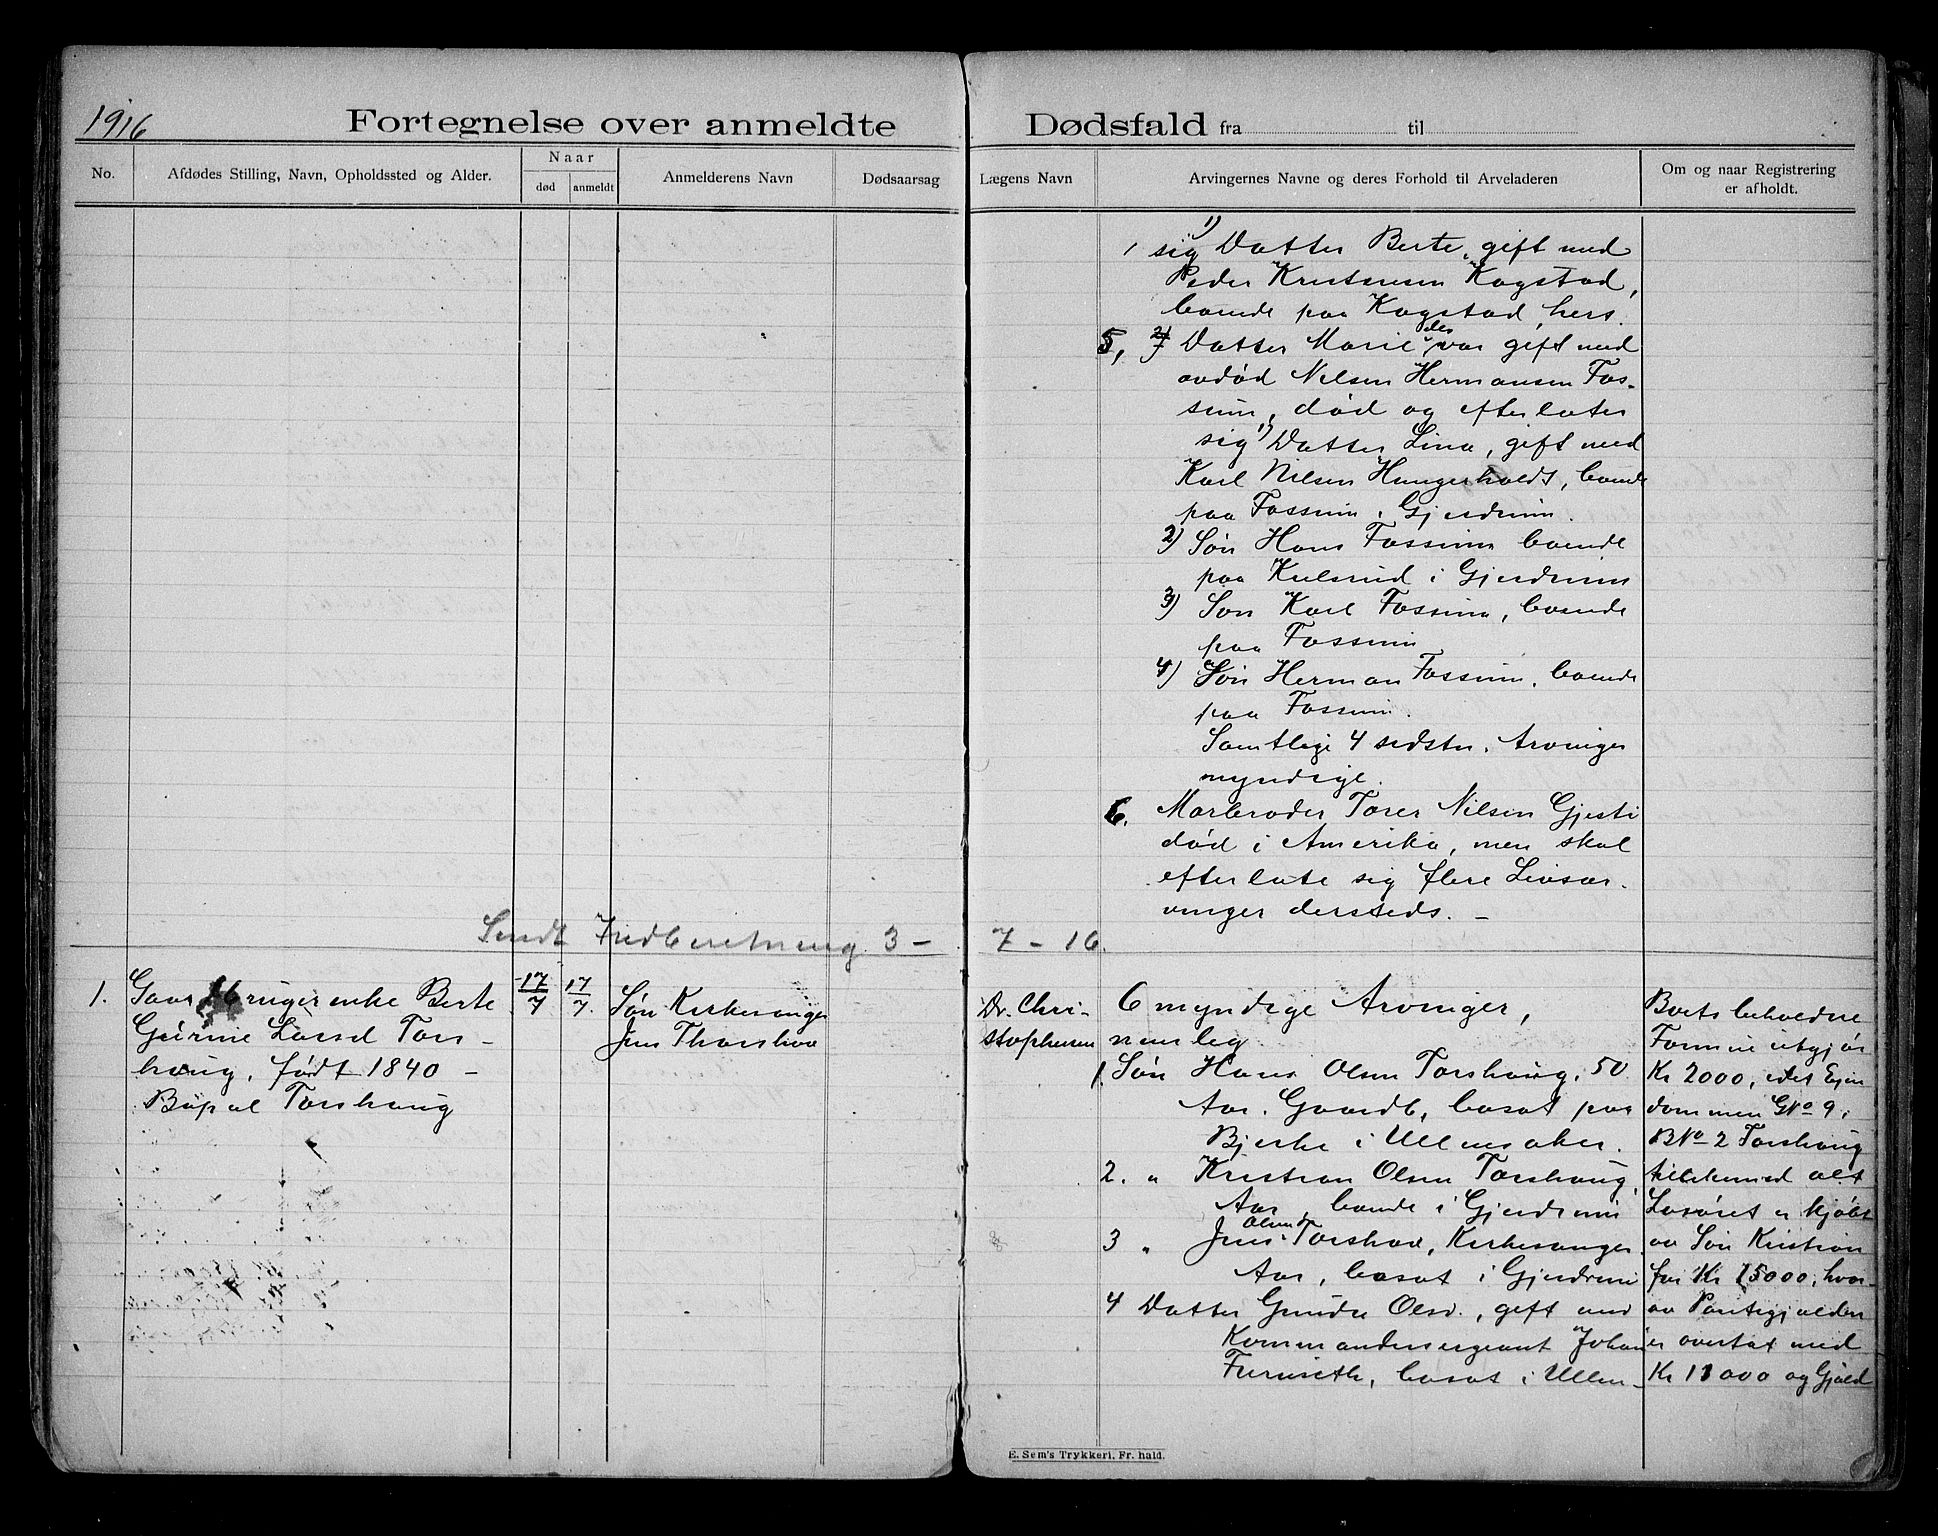 1916
Fortegnelse over anmeldte Dødsfald fra til
No.
Afdødes Stilling, Navn, Opholdssted og Alder.
Naar
død
anmeldt
Anmelderens Navn
Dødsaarsag
Lægens Navn
Arvingernes Navne og deres Forhold til Arveladeren
Om og naar Registrering
er afholdt.
sig 1) Datter Berte, gift med
Peder Kristensen Kogstad,
boende paa Kogstad, hers.
5, 2) Datter Marie, der var gift med
avdød Nilsen Hermansen Fos-
sum, død og efterlater
sig 1) Datter Lina, gift med
Karl Nilsen Hungerholdt, boende
paa Fossum i Gjerdrum.
2) Søn Hans Fossum boende
paa Kulsrud i Gjerdrum
3) Søn Karl Fossum, boende
paa Fossum
4) Søn Herman Fossum, boende
paa Fossum.
Samtlige 4 sidstn. Arvinger
myndige.
6. Morbroder Torer Nilsen Gjesti
død i Amerika, men skal
efterlate sig flere Livsar-
vinger dersteds. -
Sendt Indberetning 3 - 7 - 16.
1. Gaardbrugerenke Berte
Gurine Larsd Tors-
houg, født 1840 -
Bopæl Torshoug
17/7
17/7.
Søn Kirkesanger
Jens Thorshov
Dr. Chri-
stophersen
6 myndige Arvinger,
nemlig
1. Søn Hans Olsen Torshoug, 50
Aar. Gaardb, bosat paa
Bjerke i Ullensaker.
2. " Kristian Olsen Torshoug,
Aar, boende i Gjerdrum
3 " Jens Olsen Torshov, Kirkesanger
Aar, bosat i Gjerdrum
4 Datter Gunda Olsd., gift med
Kommandersergeant Johan
Furuseth, bosat i Ullen-
Boets beholdne
Formue utgjør
Kr 2000, idet Eien
dommen GNo 9,
BNo 2 Torshoug
tillikemed alt
Løsøret er kjøbt
av Søn Kristian
for Kr 15000, hvor
av Pantegjælden
er overtat med
Kr 11000 og Gjæld
E. Sem's Trykkeri, Fr.hald.